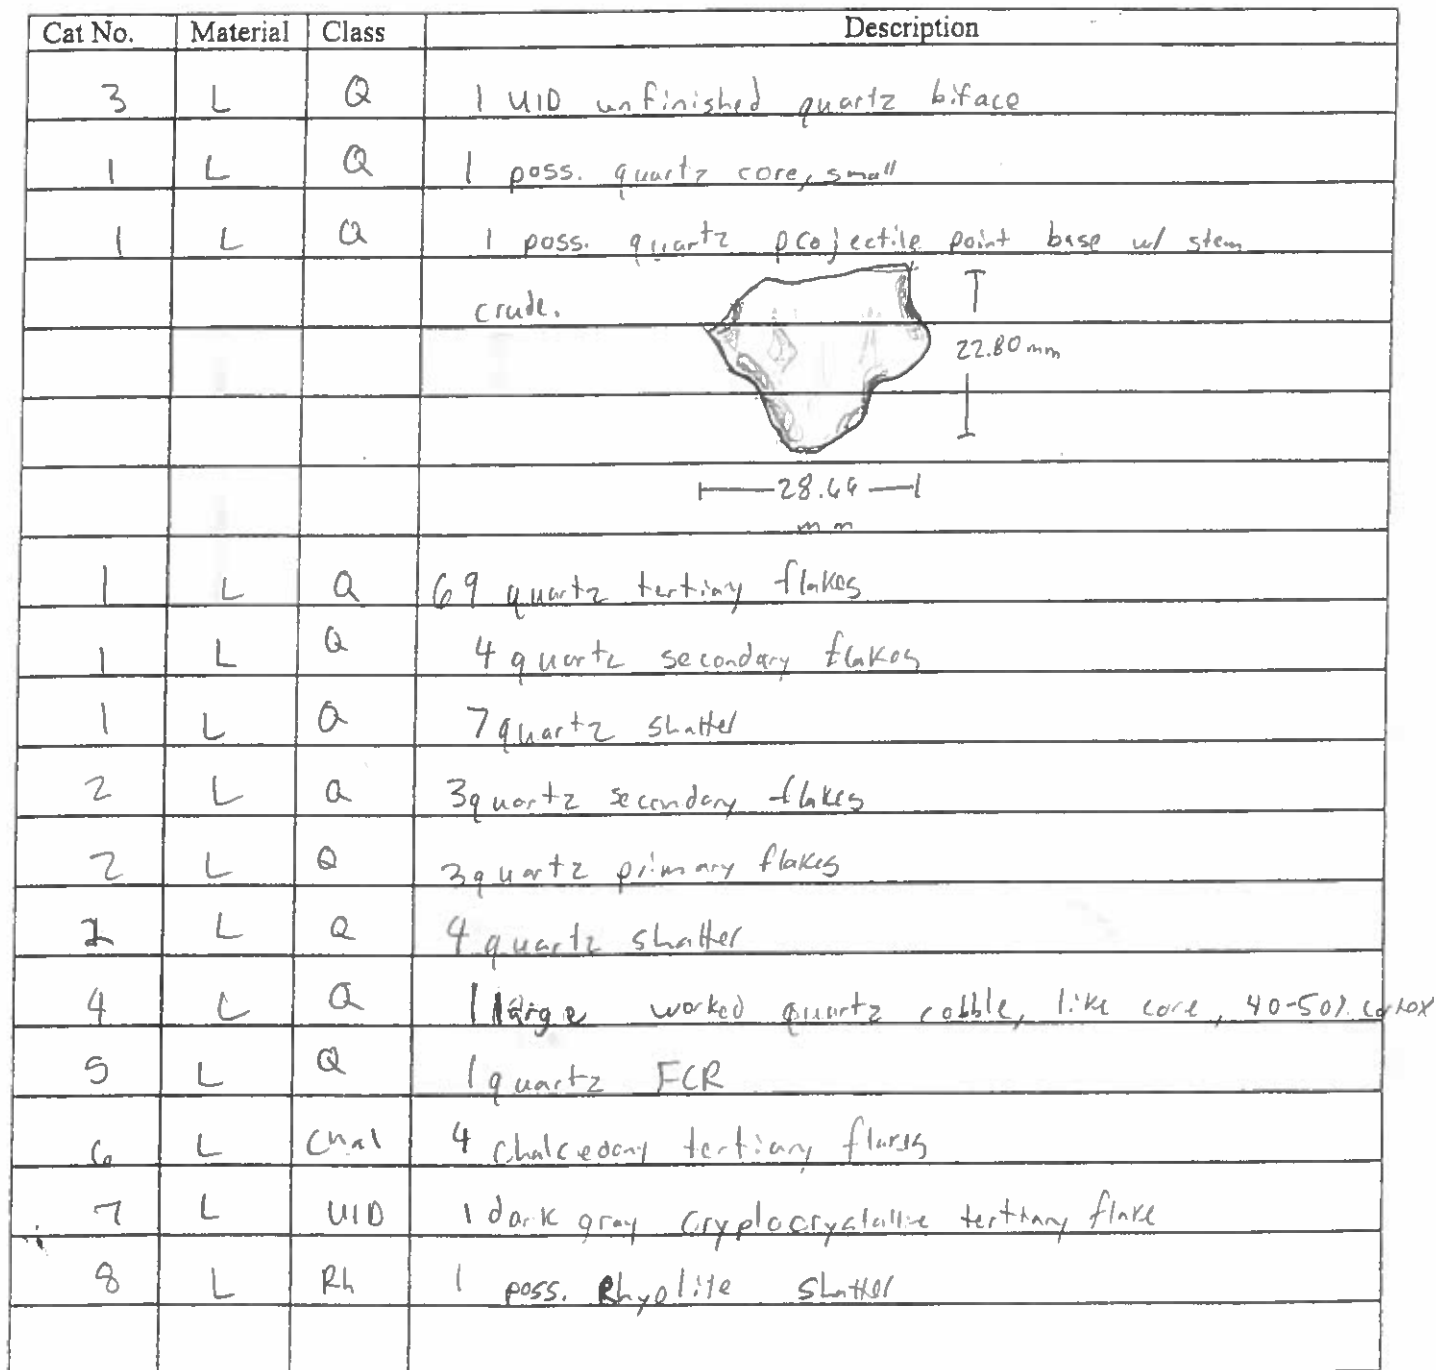 Cat No. Material Class Description
3 L Q 1 UID unfinished quartz biface
1 L Q 1 poss. quartz core, small
1 L Q 1 poss. quartz projectile point base w/ stem
crude.
22.80 mm
28.64
mm
1 L Q 69 quartz tertiary flakes
1 L Q 4 quartz secondary flakes
1 L Q 7 quartz shatter
2 L Q 3 quartz secondary flakes
2 L Q 3 quartz primary flakes
L Q 4 quartz shatter
4 L Q 1 large worked quartz cobble, like core, 40-50% cortex
5 L Q 1 quartz FCR
6 L Chal 4 Chalcedony tertiary flakes
7 L UID 1 dark gray cryptocrystalline tertiary flake
8 L Rh 1 poss. Rhyolite shatter